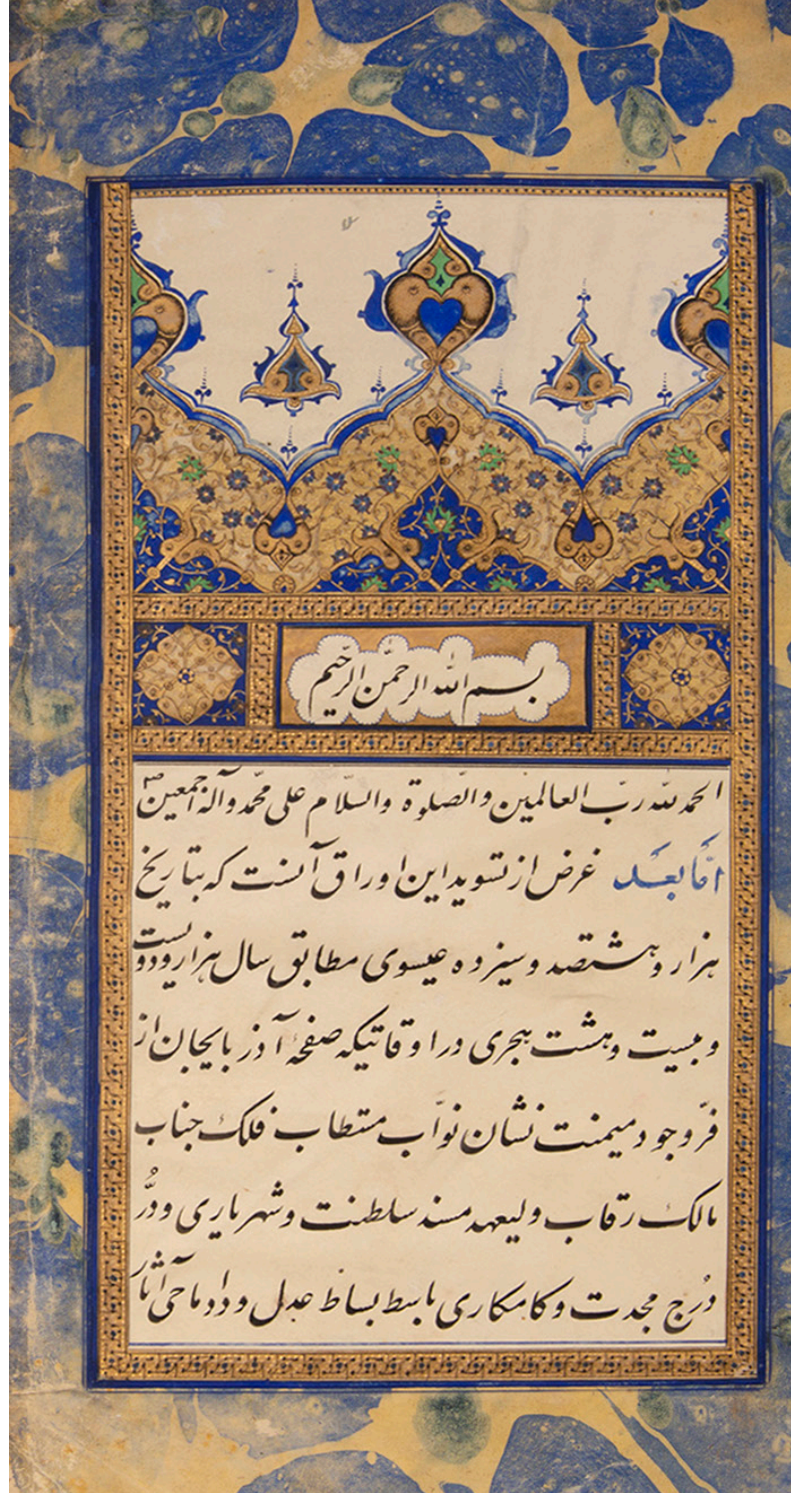 بسم الله الرحمن الرحیم
الحمد لله رب العالمین والصلوة والسلام علی محمد وآله اجمعین
امّا بعد غرض از تسوید این اوراق آنست که بتاریخ
هزار و هشتصد و سیزده عیسوی مطابق سال هزار ودویست
و بیست وهشت هجری در اوقاتیکه صفحهٔ آذربایجان از
فرّ وجود میمنت نشان نوّاب مستطاب فلک جناب
مالک رقاب ولیعهد مسند سلطنت وشهریاری ودُرّ
دُرج مجدت وکامکاری باسط بساط عدل وداد ماحی آثار